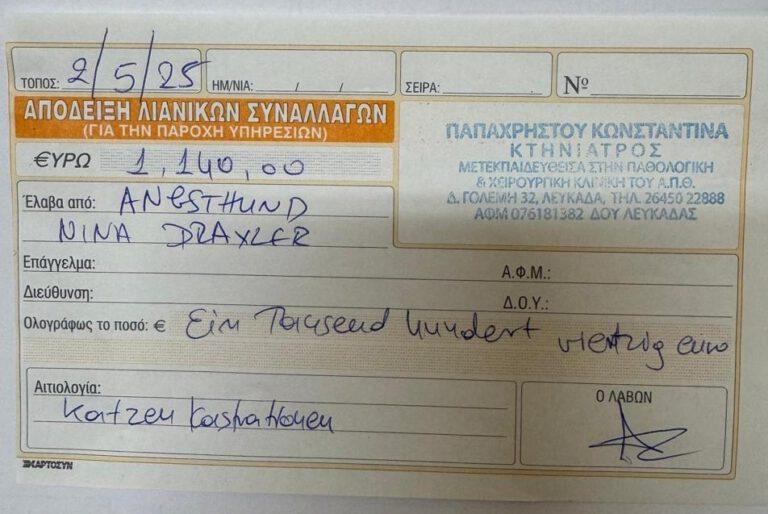 ΤΟΠΟΣ: 2/5/25 ΗΜ/ΝΙΑ: / / ΣΕΙΡΑ: Nº
ΑΠΟΔΕΙΞΗ ΛΙΑΝΙΚΩΝ ΣΥΝΑΛΛΑΓΩΝ
(ΓΙΑ ΤΗΝ ΠΑΡΟΧΗ ΥΠΗΡΕΣΙΩΝ)
€ΥΡΩ 1,140,00
ΠΑΠΑΧΡΗΣΤΟΥ ΚΩΝΣΤΑΝΤΙΝΑ
ΚΤΗΝΙΑΤΡΟΣ
ΜΕΤΕΚΠΑΙΔΕΥΘΕΙΣΑ ΣΤΗΝ ΠΑΘΟΛΟΓΙΚΗ
& ΧΕΙΡΟΥΡΓΙΚΗ ΚΛΙΝΙΚΗ ΤΟΥ Α.Π.Θ.
Δ. ΓΟΛΕΜΗ 32, ΛΕΥΚΑΔΑ, ΤΗΛ. 26450 22888
ΑΦΜ 076181382 ΔΟΥ ΛΕΥΚΑΔΑΣ
Έλαβα από: ANGSTHUND
NINA DRAXLER
Επάγγελμα: Α.Φ.Μ.:
Διεύθυνση: Δ.Ο.Υ.:
Ολογράφως το ποσό: € Ein Tausend hundert viertzig euro
Αιτιολογία:
Katzen Kastrationen
Ο ΛΑΒΩΝ
ΧΑΡΤΟΣΥΝ